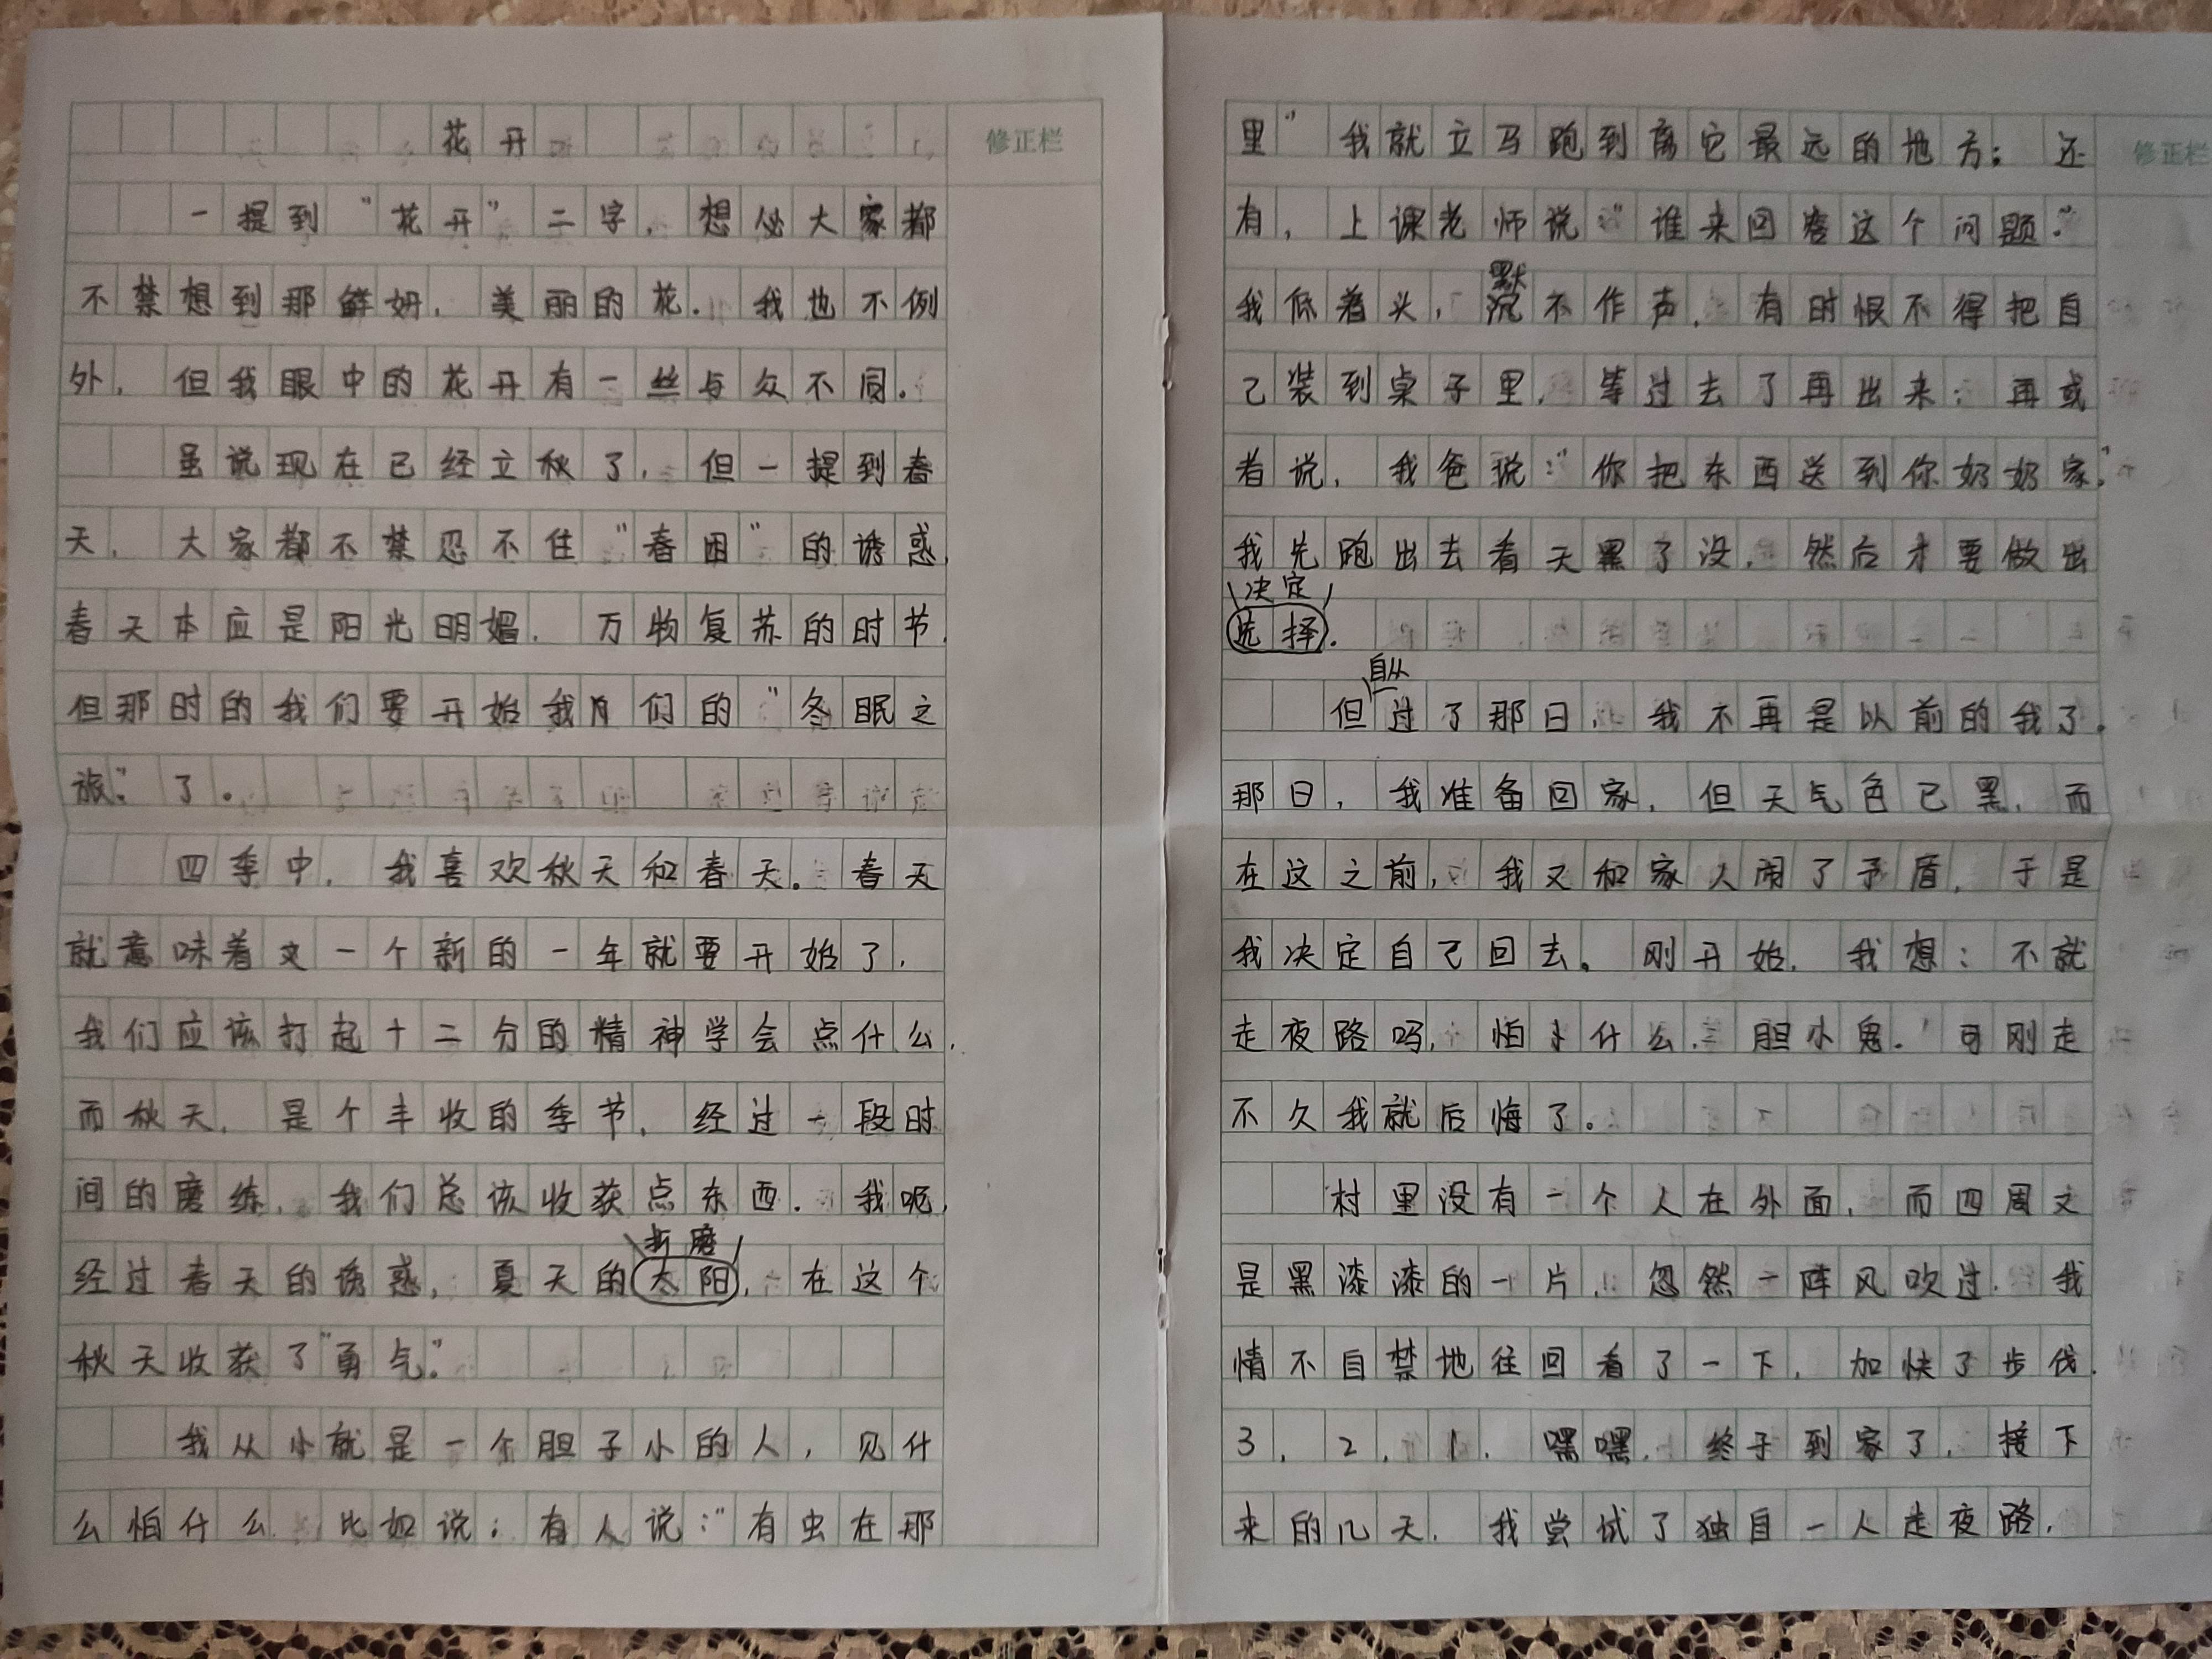 花开
修正栏
一提到“花开”二字，想必大家都
不禁想到那鲜妍，美丽的花．我也不例
外，但我眼中的花开有一丝与众不同。
虽说现在已经立秋了，但一提到春
天，大家都不禁忍不住“春困”的诱惑，
春天本应是阳光明媚，万物复苏的时节，
但那时的我们要开始我们的“冬眠之
旅”了。
四季中，我喜欢秋天和春天。春天
就意味着又一个新的一年就要开始了，
我们应该打起十二分的精神学会点什么，
而秋天，是个丰收的季节，经过一段时
间的磨练，我们总该收获点东西．我呢，
折磨
经过春天的诱惑，夏天的太阳，在这个
秋天收获了“勇气”
我从小就是一个胆子小的人，见什
么怕什么．比如说：有人说：“有虫在那
修正栏
里”我就立马跑到离它最远的地方；还
有，上课老师说：“谁来回答这个问题．”
默
我低着头，沉不作声，有时恨不得把自
己装到桌子里，等过去了再出来；再或
者说，我爸说：“你把东西送到你奶奶家．”
我先跑出去看天黑了没，然后才要做出
决定
选择．
自从
但过了那日，我不再是以前的我了。
那日，我准备回家，但天气色已黑，而
在这之前，我又和家人闹了矛盾，于是
我决定自己回去。刚开始，我想：不就
走夜路吗，怕什么，胆小鬼．’可刚走
不久我就后悔了。
村里没有一个人在外面，而四周又
是黑漆漆的一片，忽然一阵风吹过．我
情不自禁地往回看了一下，加快了步伐．
3，2，1．嘿嘿，终于到家了，接下
来的几天，我尝试了独自一人走夜路，